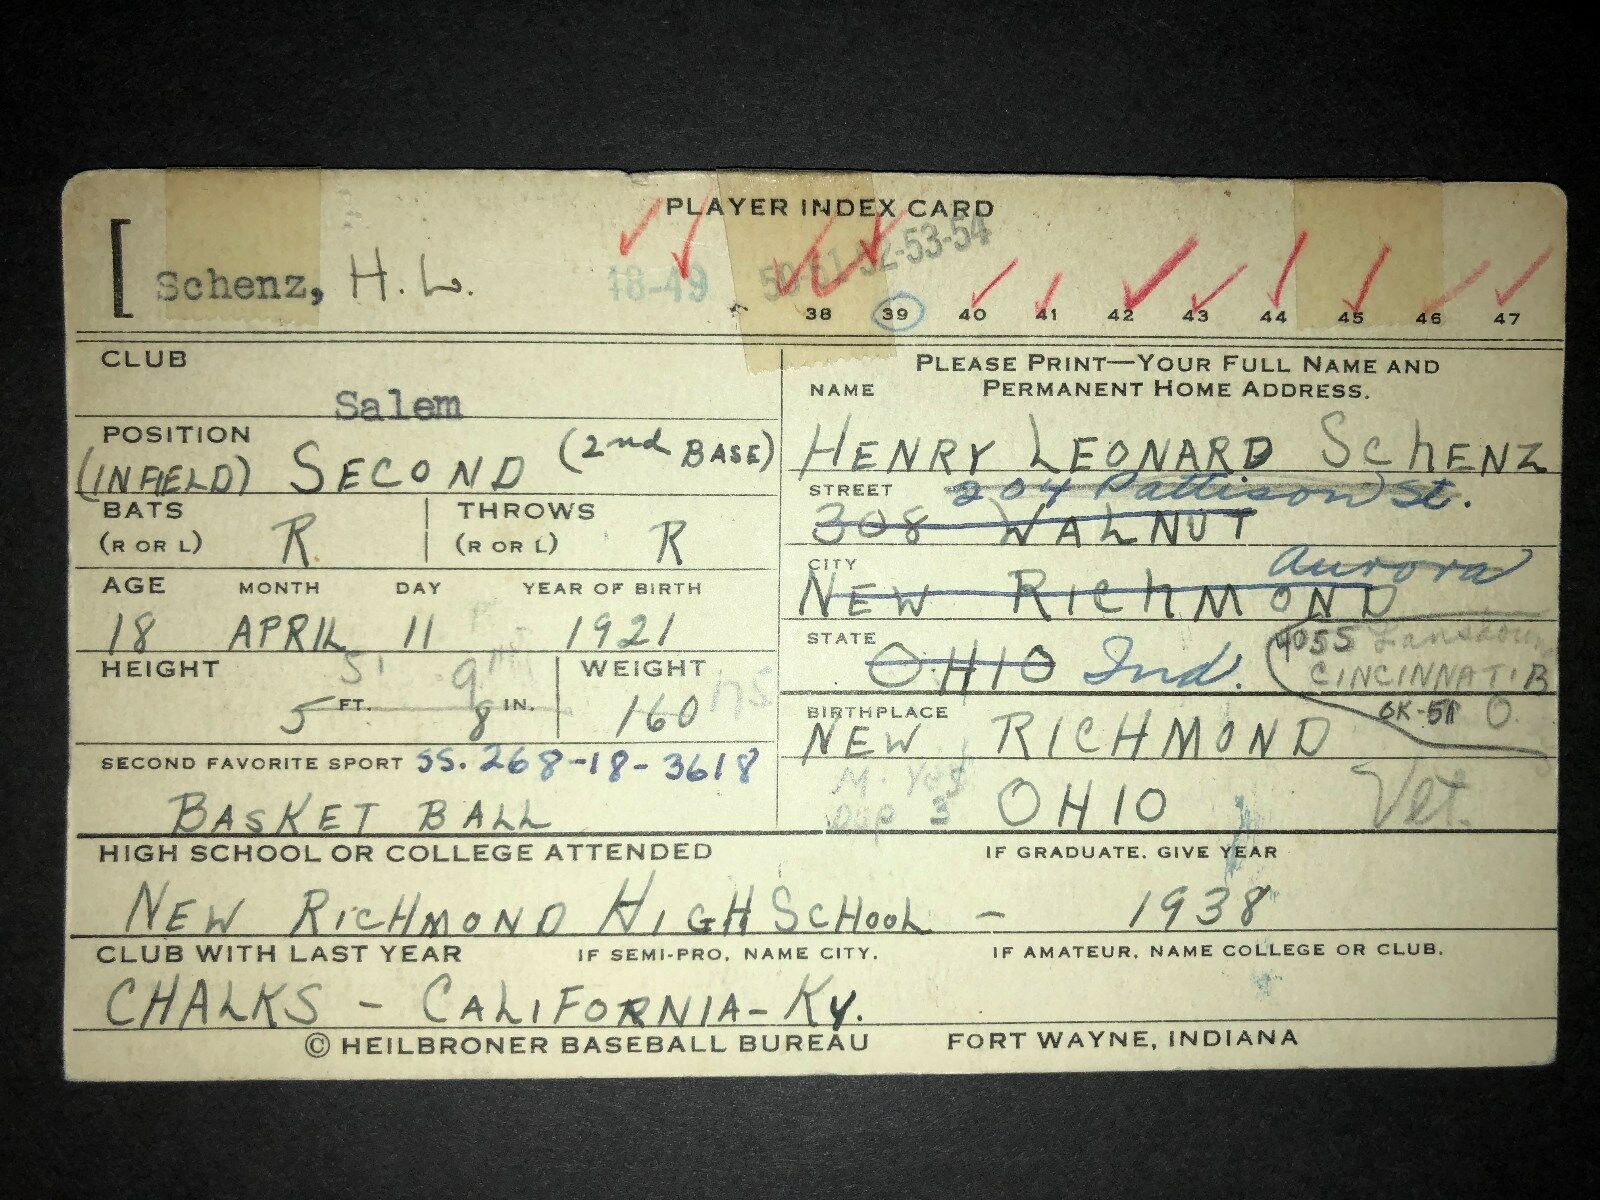 PLAYER INDEX CARD
[ Schenz, H. L. 48-49 50-51-52-53-54
38 39 40 41 42 43 44 45 46 47
CLUB
Salem
POSITION
(INFIELD) SECOND (2nd BASE)
BATS
(R OR L) R
THROWS
(R OR L) R
AGE MONTH DAY YEAR OF BIRTH
18 APRIL 11 1921
HEIGHT 5' 9
5 FT. 8 IN.
WEIGHT
160 175
SECOND FAVORITE SPORT SS. 268-18-3618
BASKET BALL
PLEASE PRINT—YOUR FULL NAME AND
PERMANENT HOME ADDRESS.
NAME
HENRY LEONARD SCHENZ
STREET 204 Pattison St.
308 WALNUT
CITY Aurora
NEW RICHMOND
STATE
OHIO Ind.
4055
CINCINNATI
OK-51 O.
BIRTHPLACE
NEW RICHMOND
OHIO
M. Yes
Dep 3
Vet.
HIGH SCHOOL OR COLLEGE ATTENDED IF GRADUATE. GIVE YEAR
NEW RICHMOND HIGH SCHOOL - 1938
CLUB WITH LAST YEAR IF SEMI-PRO, NAME CITY. IF AMATEUR, NAME COLLEGE OR CLUB.
CHALKS - CALIFORNIA - KY.
© HEILBRONER BASEBALL BUREAU FORT WAYNE, INDIANA